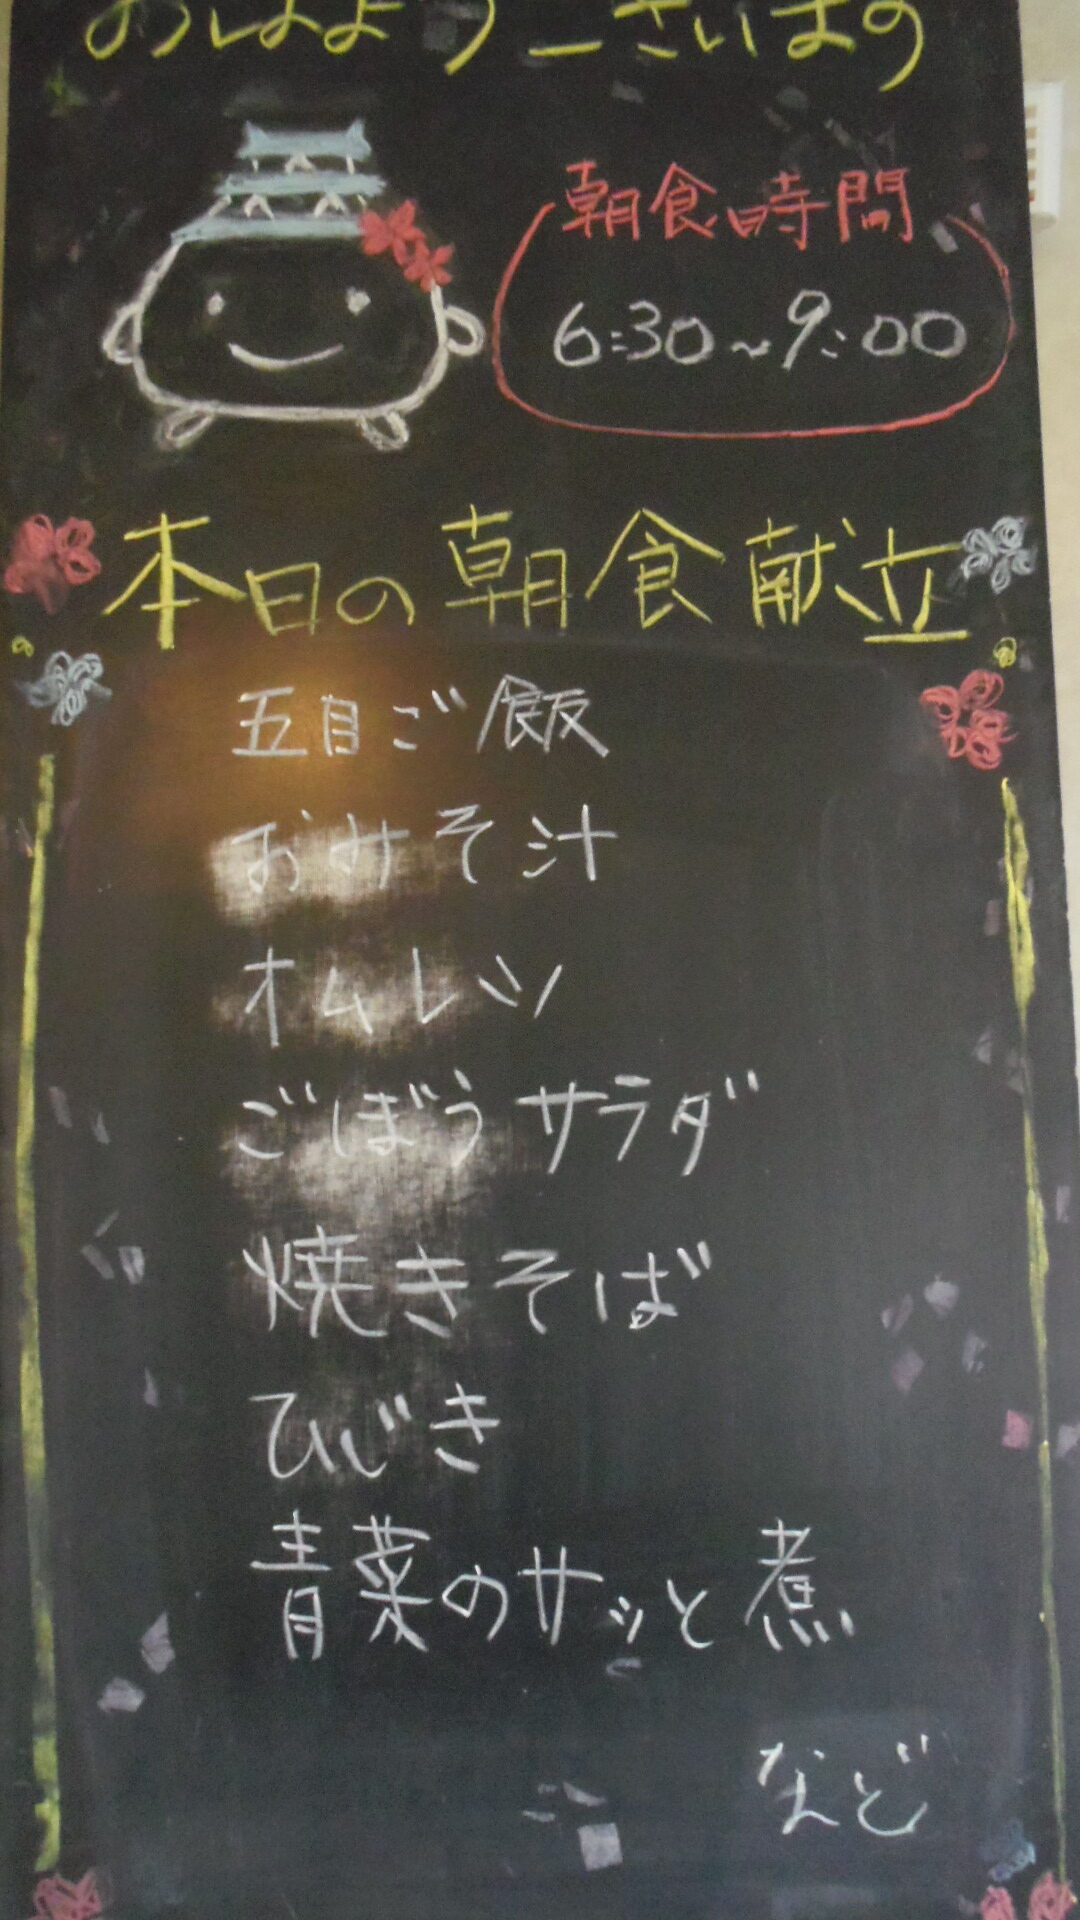 おはようございます
朝食時間
6:30~9:00
本日の朝食献立
五目ご飯
おみそ汁
オムレツ
ごぼうサラダ
焼きそば
ひじき
青菜のサッと煮
など